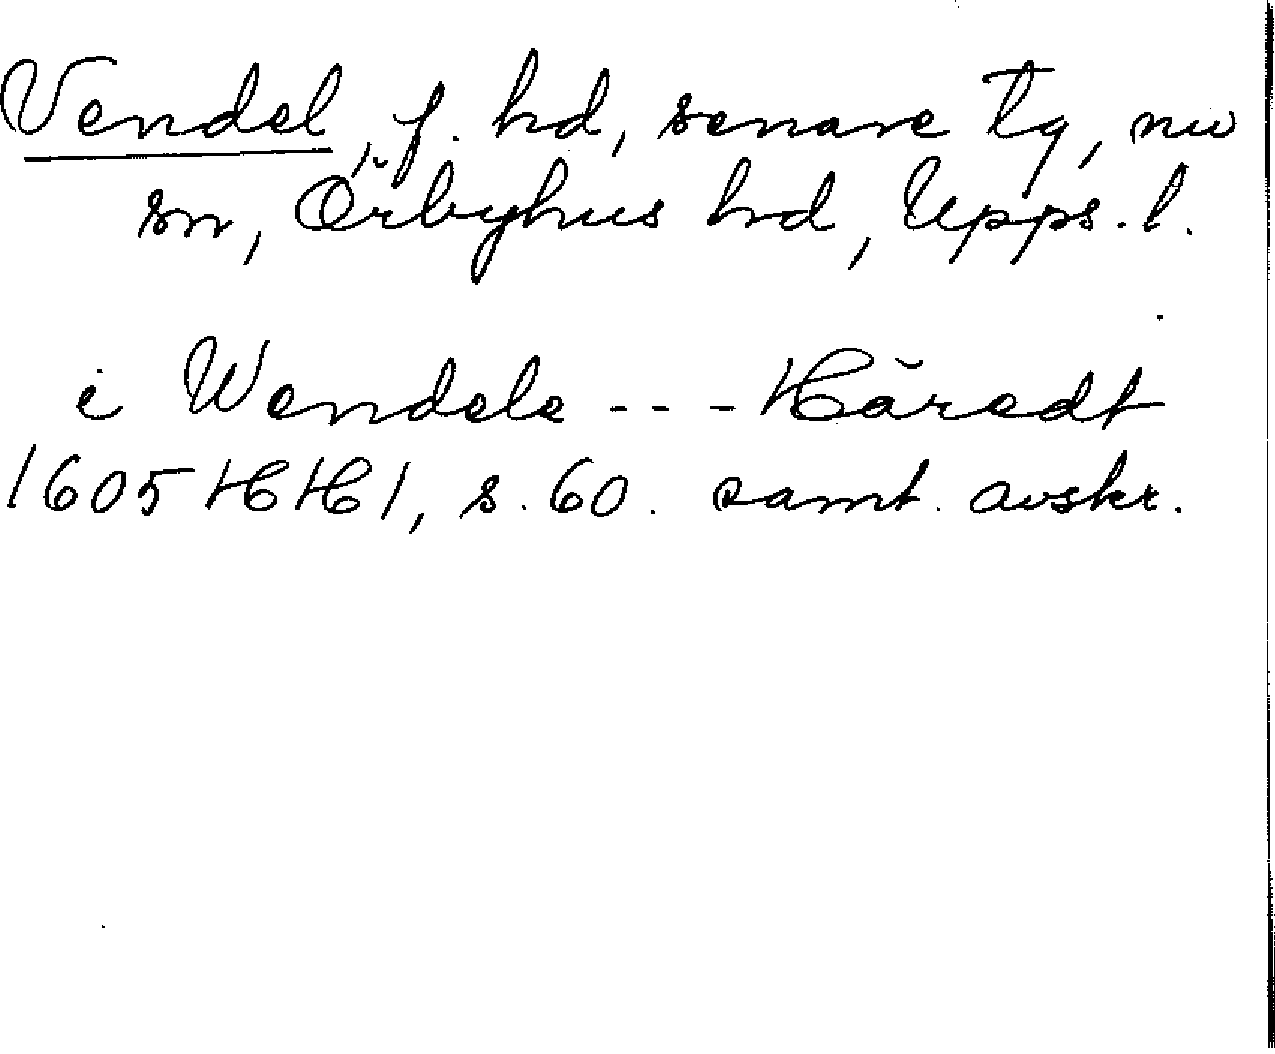 Vendel, f. hd, senare tg, nu
sn, Örbyhus hd, Upps. l.
i Wendele --- Häredt
1605 HH 1, s. 60. samt. avskr.